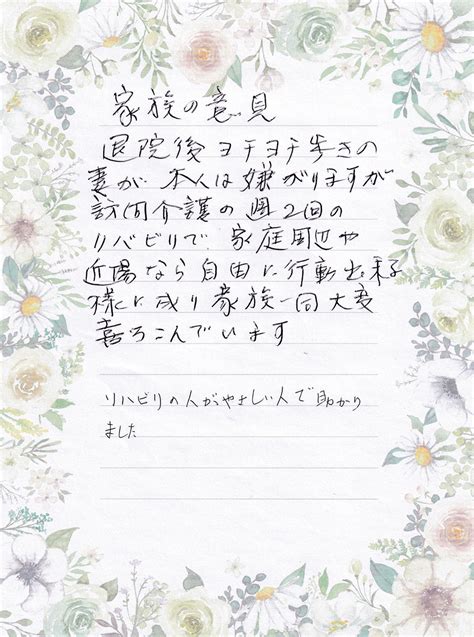 家族の意見
退院後ヨチヨチ歩きの
妻が、本人は嫌がりますが
訪問介護の週2回の
リハビリで、家庭周辺や
近場なら自由に行動出来る
様に成り家族一同大変
喜ろこんでいます
リハビリの人がやさしい人で助かり
ました